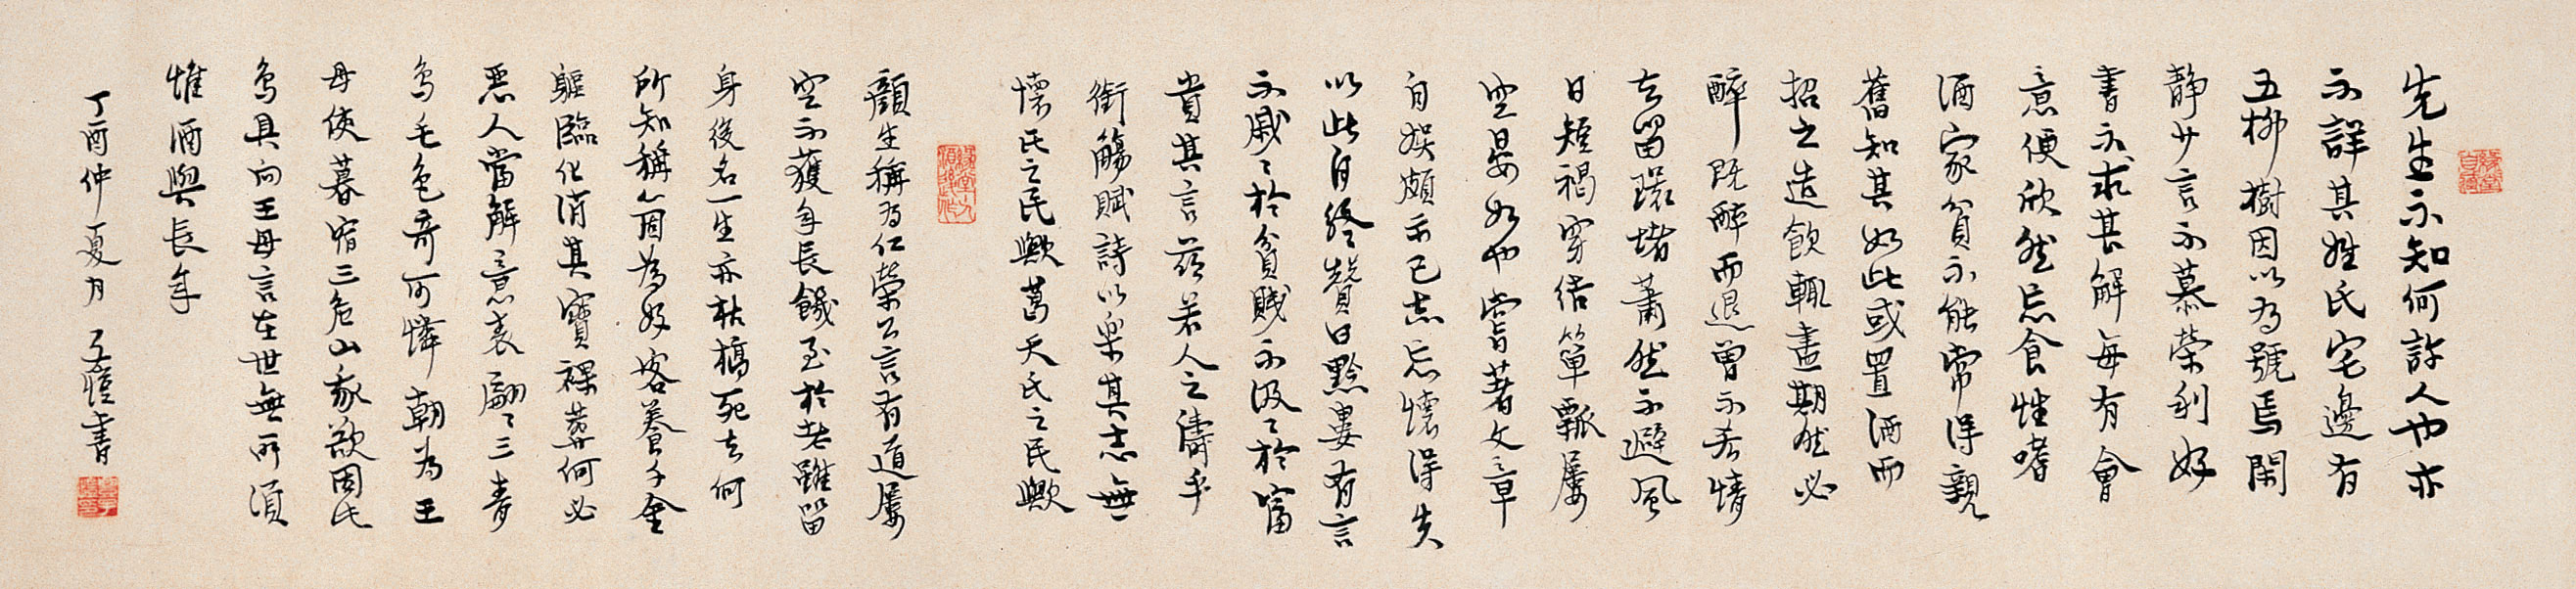 先生不知何許人也亦
不詳其姓氏宅邊有
五柳樹因以為號焉閑
靜少言不慕榮利好
書不求甚解每有會
意便欣然忘食性嗜
酒家貧不能常得親
舊知其如此或置酒而
招之造飲輒盡期然必
醉既醉而退曾不吝情
去留環堵蕭然不避風
日短褐穿結簞瓢屢
空晏如也嘗著文章
自娛頗示己志忘懷得失
以此自終贊曰黔婁有言
不戚〻於貧賤不汲〻於富
貴其言茲若人之儔乎
銜觴賦詩以樂其志無
懷氏之民歟葛天氏之民歟
顏生稱為仁榮公言有道屢
空不獲年長饑至於老雖留
身後名一生亦枯槁死去何
所知稱心固為好客養千金
軀臨化消其寶裸葬何必
惡人當解意表翩〻三青
鳥毛色奇可憐朝為王
母使暮宿三危山我欲因此
鳥具向王母言在世無所須
惟酒與長年
丁酉仲夏月 書